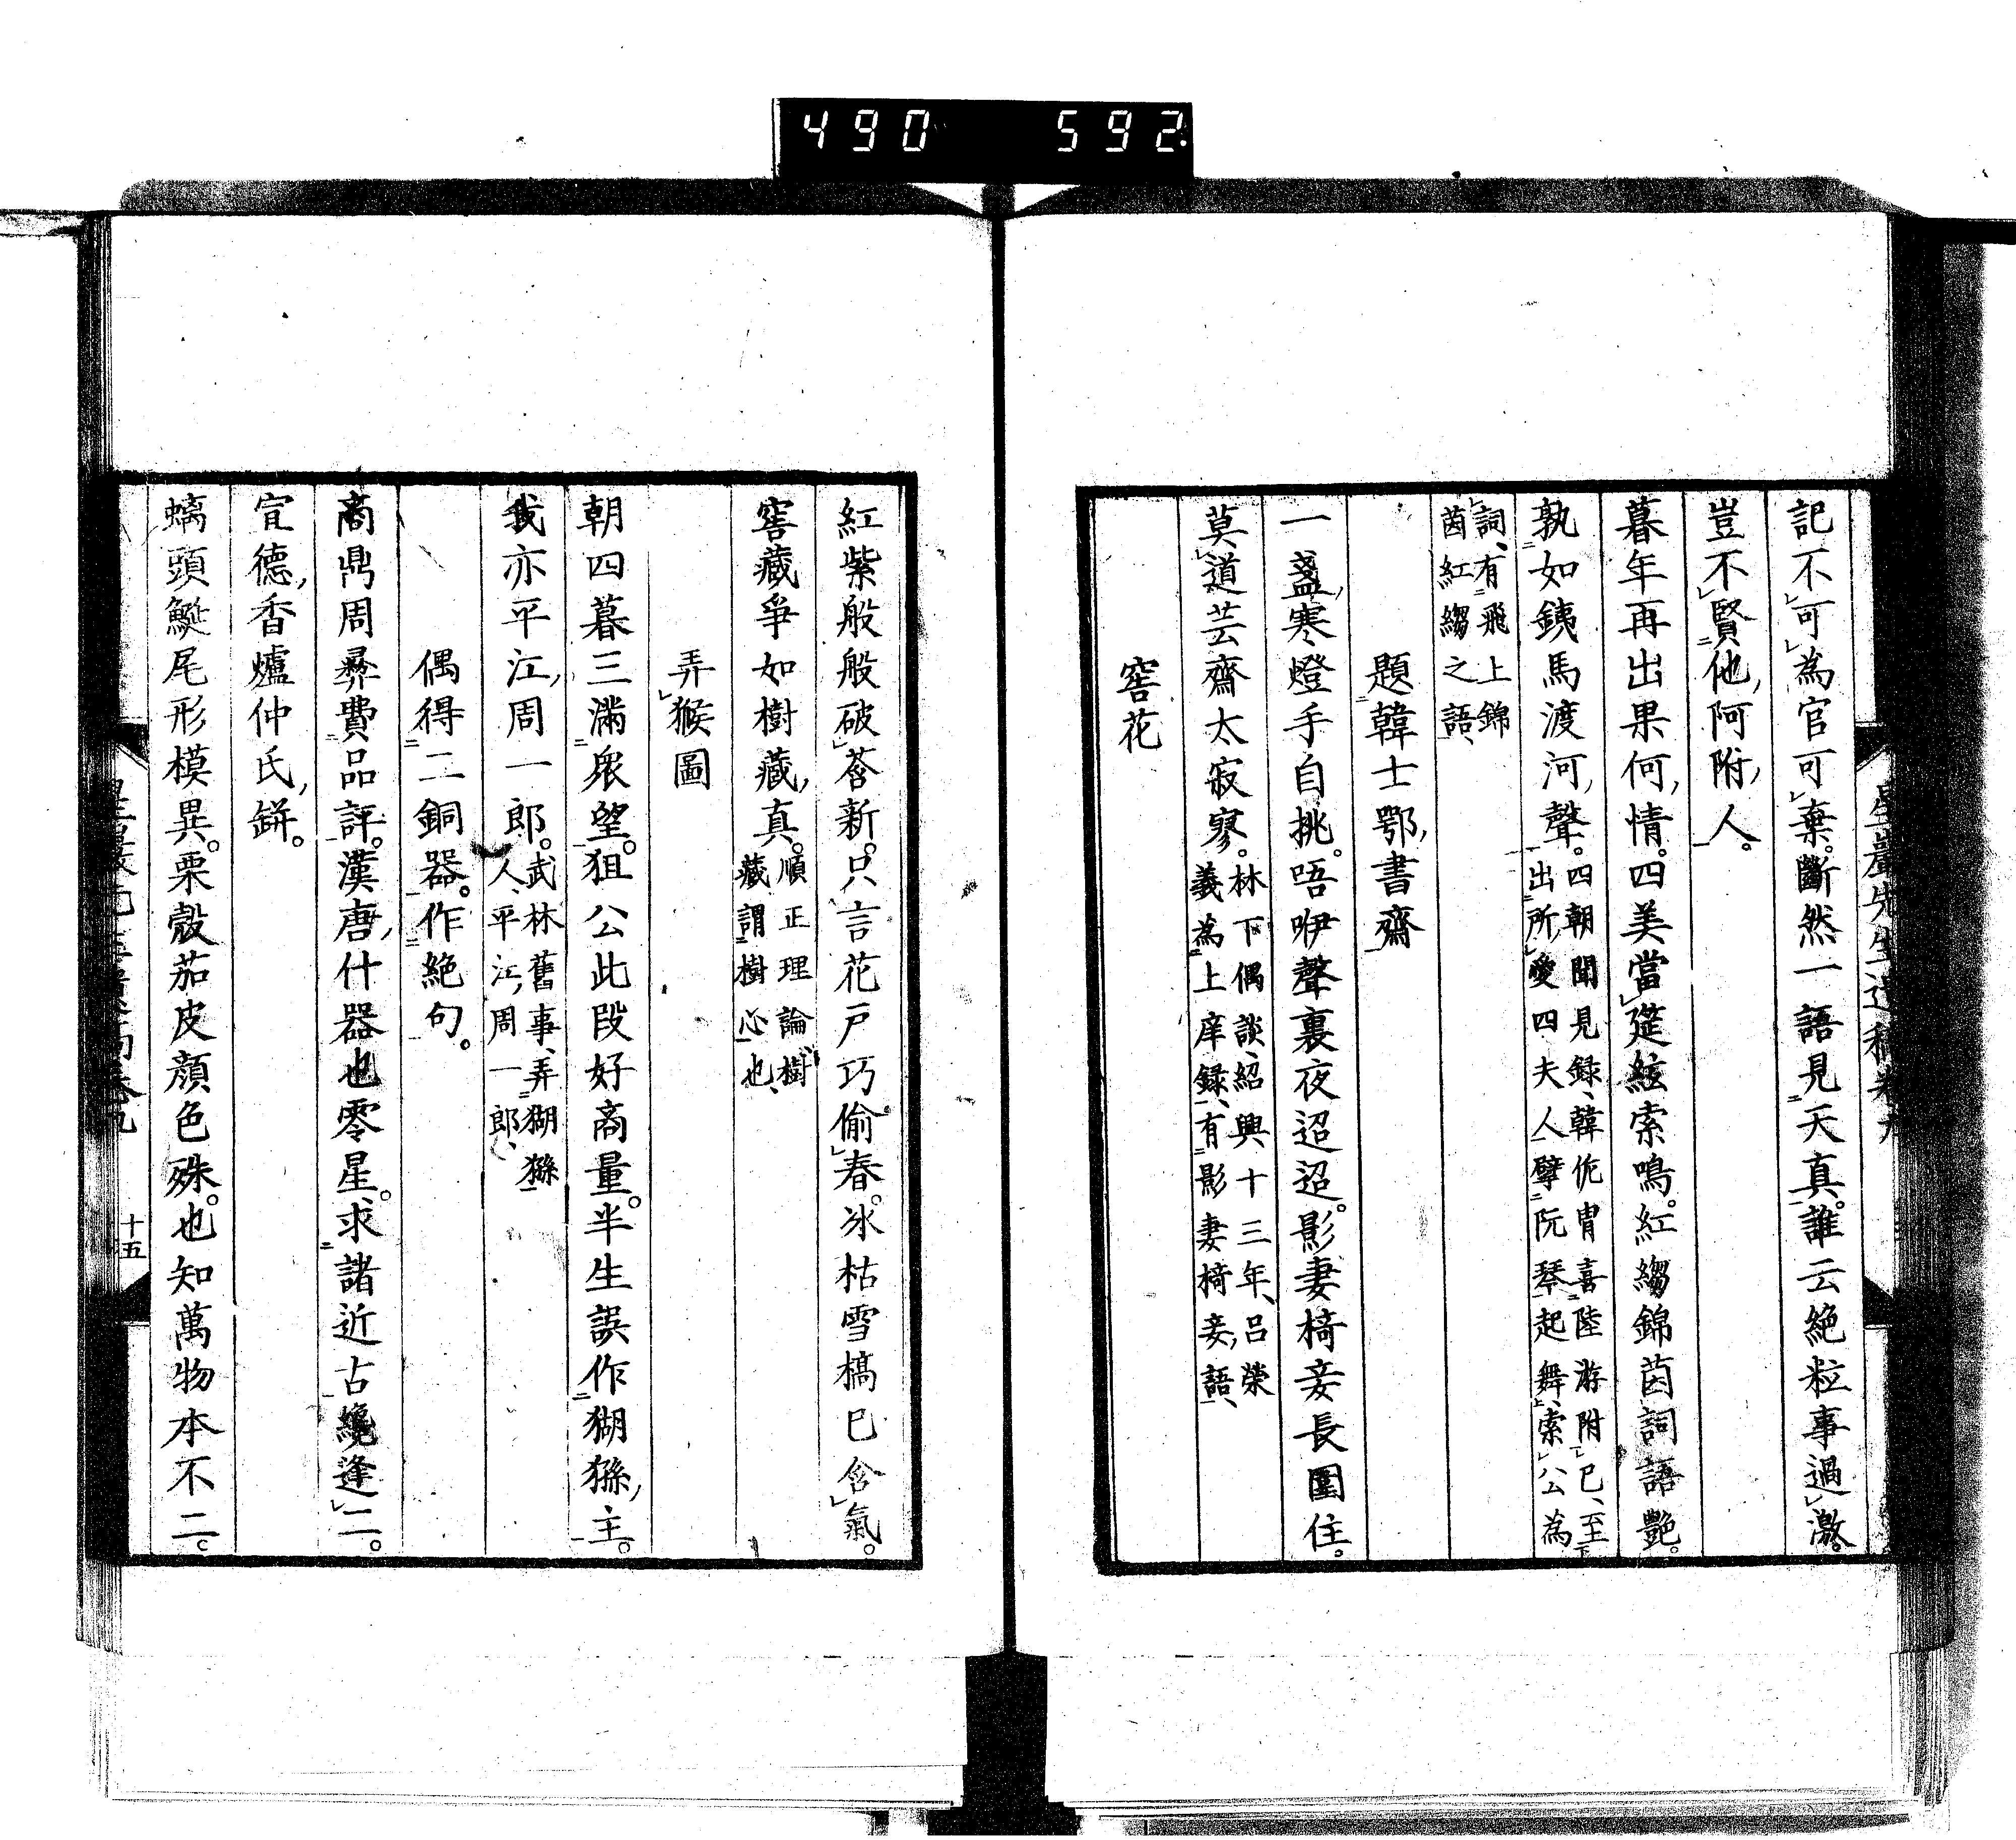 490 592
記不可為官可棄。斷然一語見天真。誰云絶粒事過激。
豈不賢他阿附人。
暮年再出果何情。四美當筵絃索鳴。紅縐錦茵詞語艶。
孰如銕馬渡河聲。
四朝聞見録、韓侂冑喜陸游附已、至
出所愛四夫人擘阮琴起舞、索公為
詞、有飛上錦
茵紅縐之語、
題韓士鄂書齋
一盞寒燈手自挑。唔咿聲裏夜迢迢。影妻椅妾長圍住。
莫道芸齋太寂寥。
林下偶談、紹興十三年、呂榮
義為上庠録、有影妻椅妾語、
窖花
紅紫般般破蒼新。只言花戸巧偷春。冰枯雪槁已含氣。
窖藏爭如樹藏真。
順正理論、樹
藏謂樹心也、
弄猴圖
朝四暮三滿衆望。狙公此段好商量。半生誤作猢猻主。
我亦平江周一郎。
武林舊事、弄猢猻
人、平江周一郎、
偶得二銅器。作絶句。
商鼎周彝費品評。漢唐什器也零星。求諸近古纔逢二。
宣德香爐仲氏鉼。
螭頭鯅尾形模異。栗殼茄皮顔色殊。也知萬物本不二。
十五